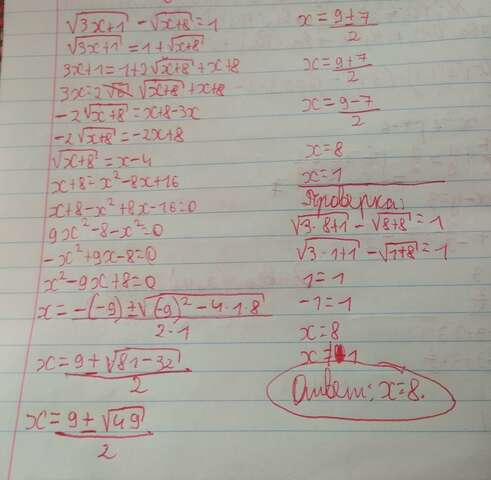 √3x+1 - √x+8 = 1
√3x+1 = 1+√x+8
3x+1=1+2√x+8+x+8
3x=2√x+8+x+8
-2√x+8=x+8-3x
-2√x+8=-2x+8
√x+8=x-4
x+8=x²-8x+16
x+8-x²+8x-16=0
9x²-8-x²=0
-x²+9x-8=0
x²-9x+8=0
x=-(-9)±√(-9)²-4·1·8/2·1
x=9±√81-32/2
x=9±√49/2
x=9±7/2
x=9+7/2
x=9-7/2
x=8
x=1
Проверка:
√3·8+1-√8+8=1
√3·1+1-√1+8=1
1=1
-1=1
x=8
x≠1
Ответ: x=8.